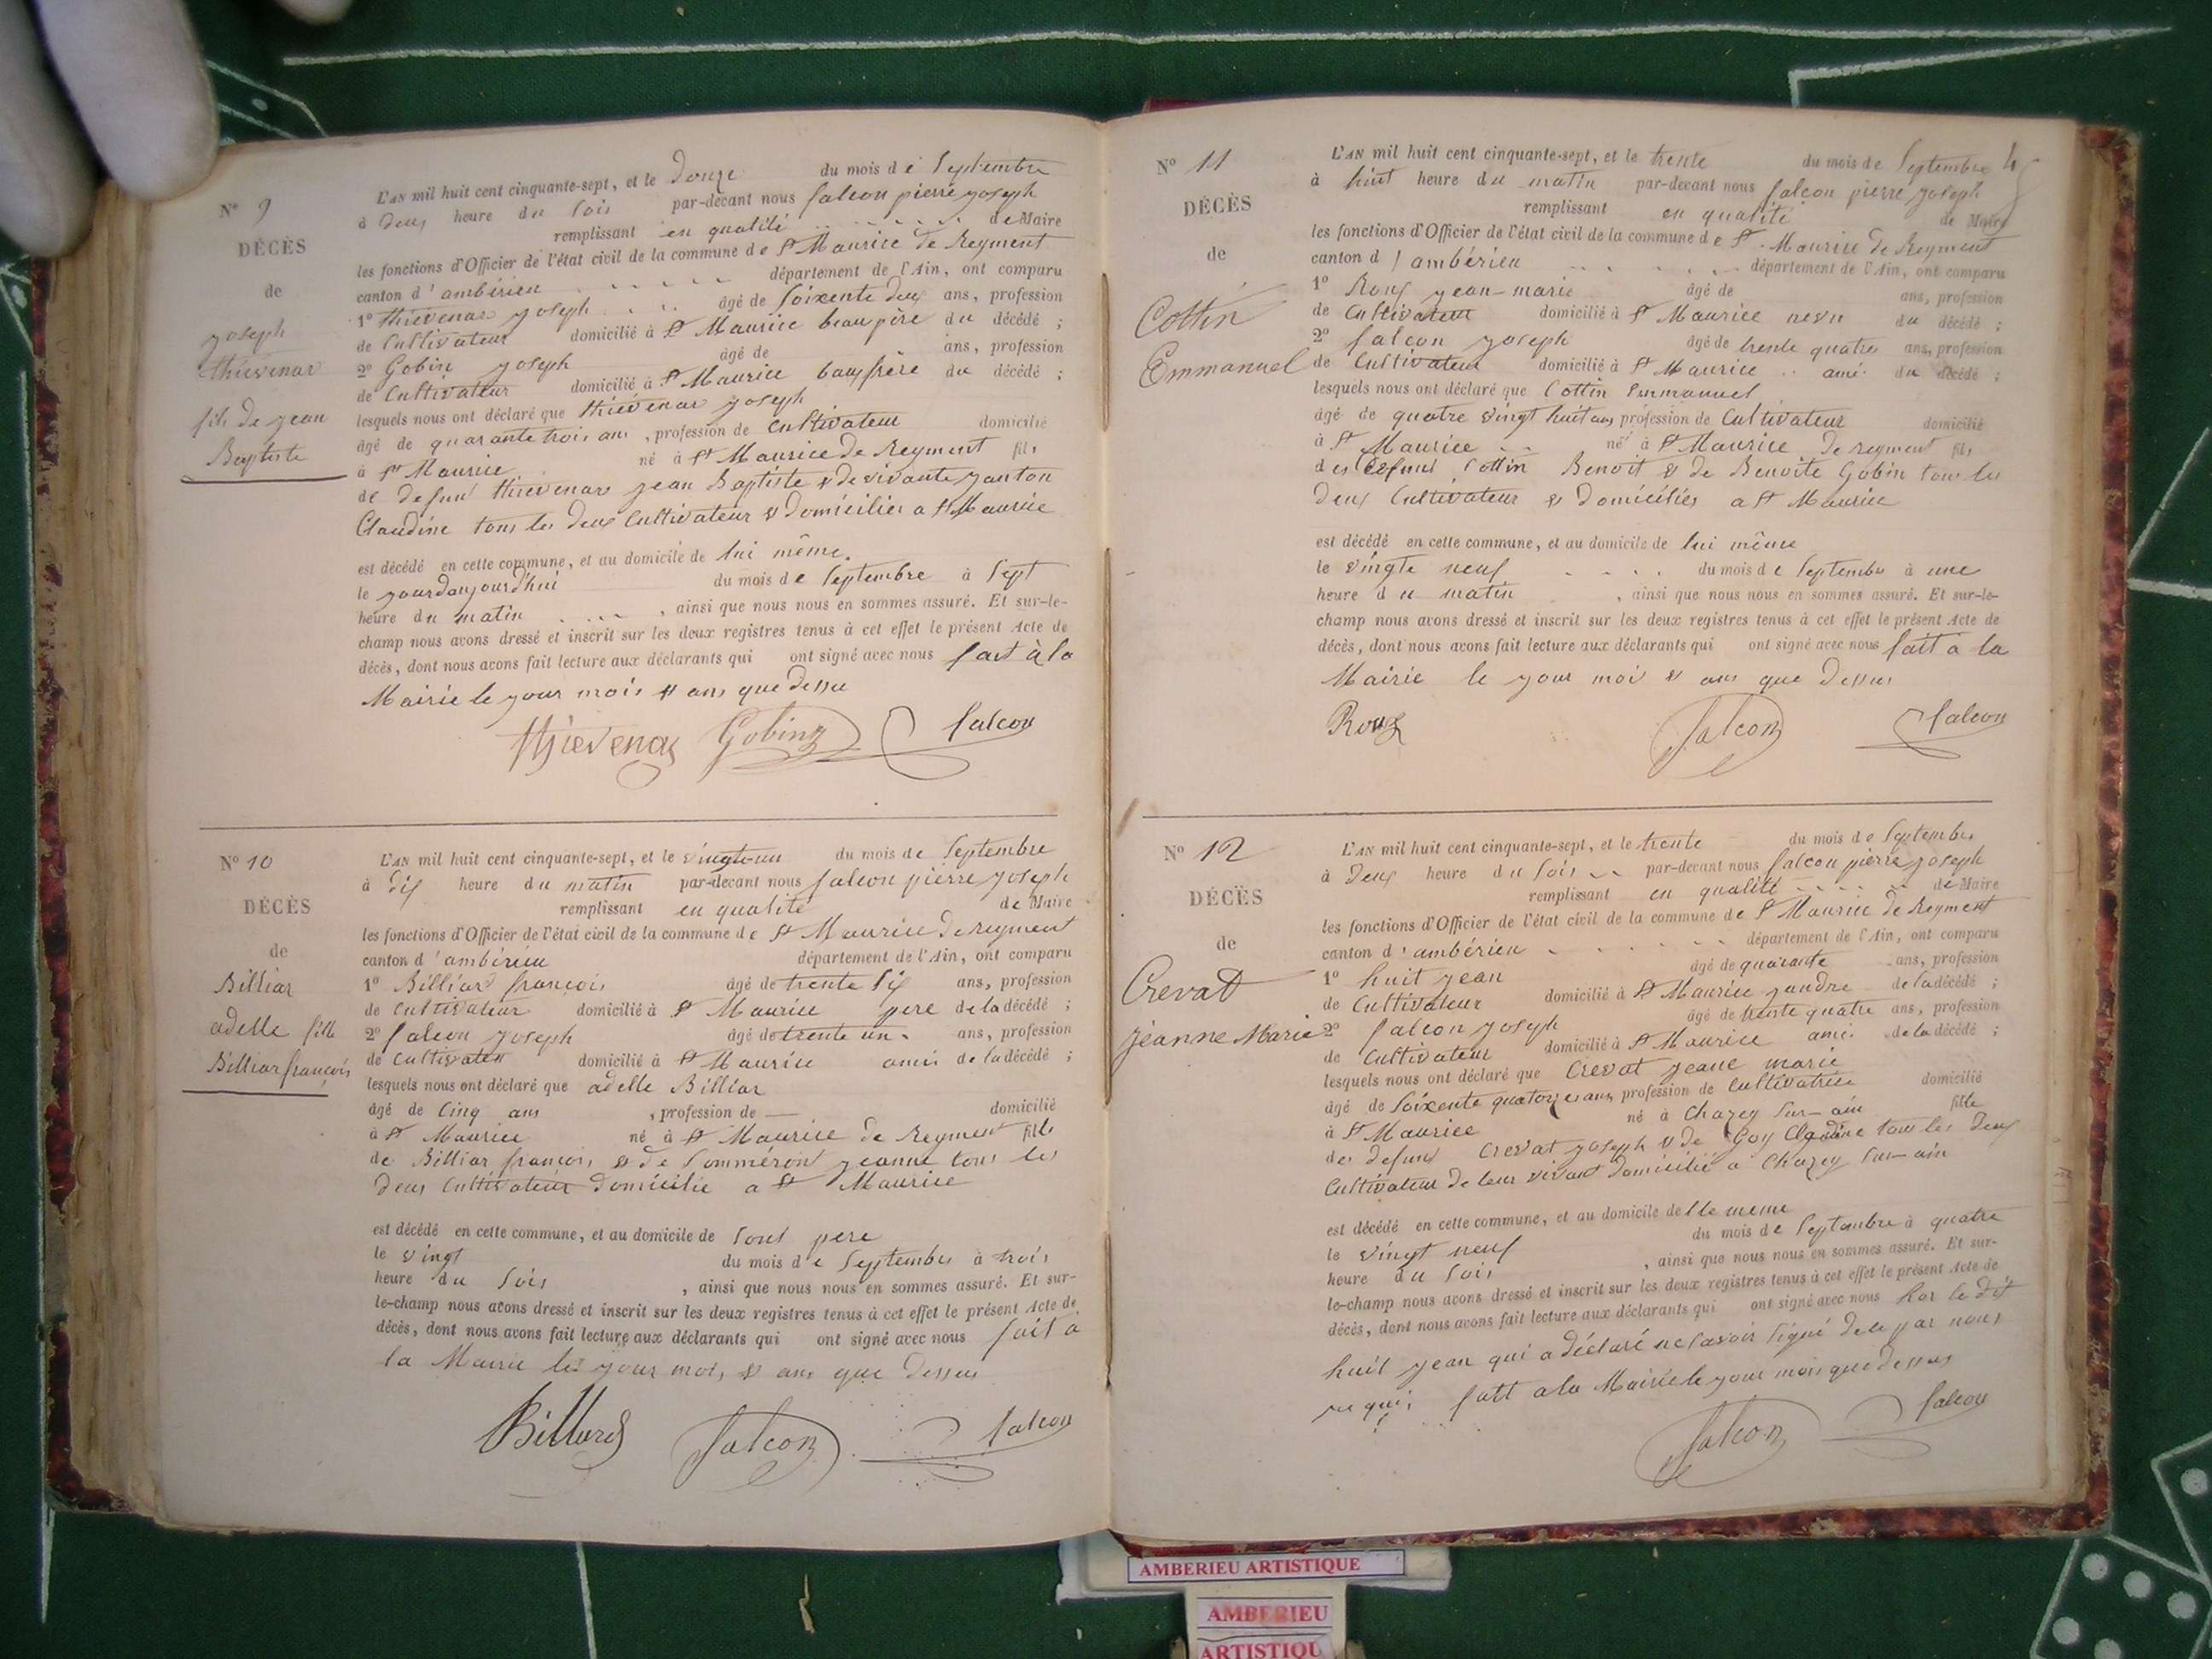 L'AN mil huit cent cinquante-sept, et le Douze du mois de Septembre
à deux heure du soir par-devant nous falcon pierre joseph
remplissant en qualité de Maire
les fonctions d'Officier de l'état civil de la commune de St Maurice de Reyment
canton d'ambérieu département de l'Ain, ont comparu
1º thievenar joseph âgé de soixente deux ans, profession
de Cultivateur domicilié à St Maurice beau père du décédé ;
2º Gobin joseph âgé de ans, profession
de Cultivateur domicilié à St Maurice baux frère du décédé ;
lesquels nous ont déclaré que thiévenar joseph
âgé de quarante trois ans , profession de Cultivateur domicilié
à St Maurice né à St Maurice de Reyment fils
de defunt thievenar jean Baptiste & de vivante janton
Claudine tous les deux Cultivateur & domicilier a St Maurice
est décédé en cette commune, et au domicile de lui même.
le jourdaujourd'hui du mois de Septembre à Sept
heure du matin , ainsi que nous nous en sommes assuré. Et sur-le-
champ nous avons dressé et inscrit sur les deux registres tenus à cet effet le présent Acte de
décès, dont nous avons fait lecture aux déclarants qui ont signé avec nous fait à la
Mairie le jour mois & ans que dessu
Nº 9
DÉCÈS
de
joseph
thievenar
fils de jean
Baptiste
thievenar Gobin falcon
Nº 10
DÉCÈS
de
Billiar
adelle fille
Billiar françois
L'AN mil huit cent cinquante-sept, et le vingt-un du mois de Septembre
à dix heure du matin par-devant nous falcon pierre joseph
remplissant en qualité de Maire
les fonctions d'Officier de l'état civil de la commune de St Maurice de reyment
canton d'ambérieu département de l'Ain, ont comparu
1º Billiar françois âgé de trente six ans, profession
de Cultivateur domicilié à St Maurice pere de la décédé ;
2º falcon joseph âgé de trente un. ans, profession
de Cultivateur domicilié à St Maurice ami de la décédé ;
lesquels nous ont déclaré que adelle Billiar
âgé de Cinq ans , profession de — domicilié
à St Maurice né à St Maurice de Reyment fille
de Billiar françois & de Sommeron jeanne tous les
deux Cultivateur domicilie a St Maurice
est décédé en cette commune, et au domicile de sont pere
le vingt du mois de Septembre à trois
heure du soir , ainsi que nous nous en sommes assuré. Et sur-
le-champ nous avons dressé et inscrit sur les deux registres tenus à cet effet le présent Acte de
décès, dont nous avons fait lecture aux déclarants qui ont signé avec nous fait a
la Mairie les jour mois & ans que dessus
Billiard falcon falcon
Nº 11
DÉCÈS
de
Cottin
Emmanuel
L'AN mil huit cent cinquante-sept, et le trente du mois de Septembre
à huit heure du matin par-devant nous falcon pierre joseph
remplissant en qualité de Maire
les fonctions d'Officier de l'état civil de la commune de St Maurice de Reyment
canton d'ambérieu département de l'Ain, ont comparu
1º Roux jean-marie âgé de ans, profession
de Cultivateur domicilié à St Maurice nevu du décédé ;
2º falcon joseph âgé de trente quatre ans, profession
de Cultivateur domicilié à St Maurice ami du décédé ;
lesquels nous ont déclaré que Cottin Emmanuel
âgé de quatre vingt huit ans profession de Cultivateur domicilié
à St Maurice né à St Maurice de reyment fils
des defunt Cottin Benoit & de Benoite Gobin tous les
deux Cultivateur & domiciliés a St Maurice
est décédé en cette commune, et au domicile de lui même
le vingte neuf du mois de Septembre à une
heure du matin , ainsi que nous nous en sommes assuré. Et sur-le-
champ nous avons dressé et inscrit sur les deux registres tenus à cet effet le présent Acte de
décès, dont nous avons fait lecture aux déclarants qui ont signé avec nous fait a la
Mairie le jour moi & ans que dessus
Roux falcon falcon
Nº 12
DÉCÈS
de
Crevat
jeanne Marie
L'AN mil huit cent cinquante-sept, et le trente du mois de Septembre
à deux heure du soir par-devant nous falcon pierre joseph
remplissant en qualité de Maire
les fonctions d'Officier de l'état civil de la commune de St Maurice de Reyment
canton d'ambérieu département de l'Ain, ont comparu
1º huit jean âgé de quarante ans, profession
de Cultivateur domicilié à St Maurice jandre de la décédé ;
2º falcon joseph âgé de trente quatre ans, profession
de Cultivateur domicilié à St Maurice ami de la décédé ;
lesquels nous ont déclaré que Crevat jeane marie
âgé de soixente quatorze ans profession de Cultivatrice domicilié
à St Maurice né à Chazey sur-ain fille
des defunt Crevat joseph & de Goy Claudine tous les deux
Cultivateur de leur vivant domicilié a Chazey sur-ain
est décédé en cette commune, et au domicile delle meme
le vingt neuf du mois de Septembre à quatre
heure du soir , ainsi que nous nous en sommes assuré. Et sur-
le-champ nous avons dressé et inscrit sur les deux registres tenus à cet effet le présent Acte de
décès, dont nous avons fait lecture aux déclarants qui ont signé avec nous hor le dit
huit jean qui a déclaré ne savoir signé de ce par nous
requis fatt a la Mairie le jour mois que dessus
falcon falcon
AMBERIEU ARTISTIQUE
AMBERIEU
ARTISTIQU